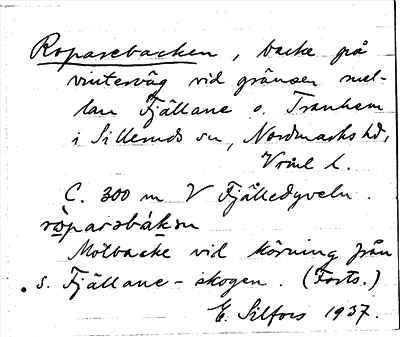 Roparebacken, backe på
vinterväg vid gränsen mel-
lan Fjällane o. Tranhem
i Silleruds sn, Nordmarks hd,
Vrml l.
C. 300 m V Fjälledyveln.
rò̀parəbákən
Motbacke vid körning från
s. Fjällane-skogen. (Forts.)
E. Silfors 1937.